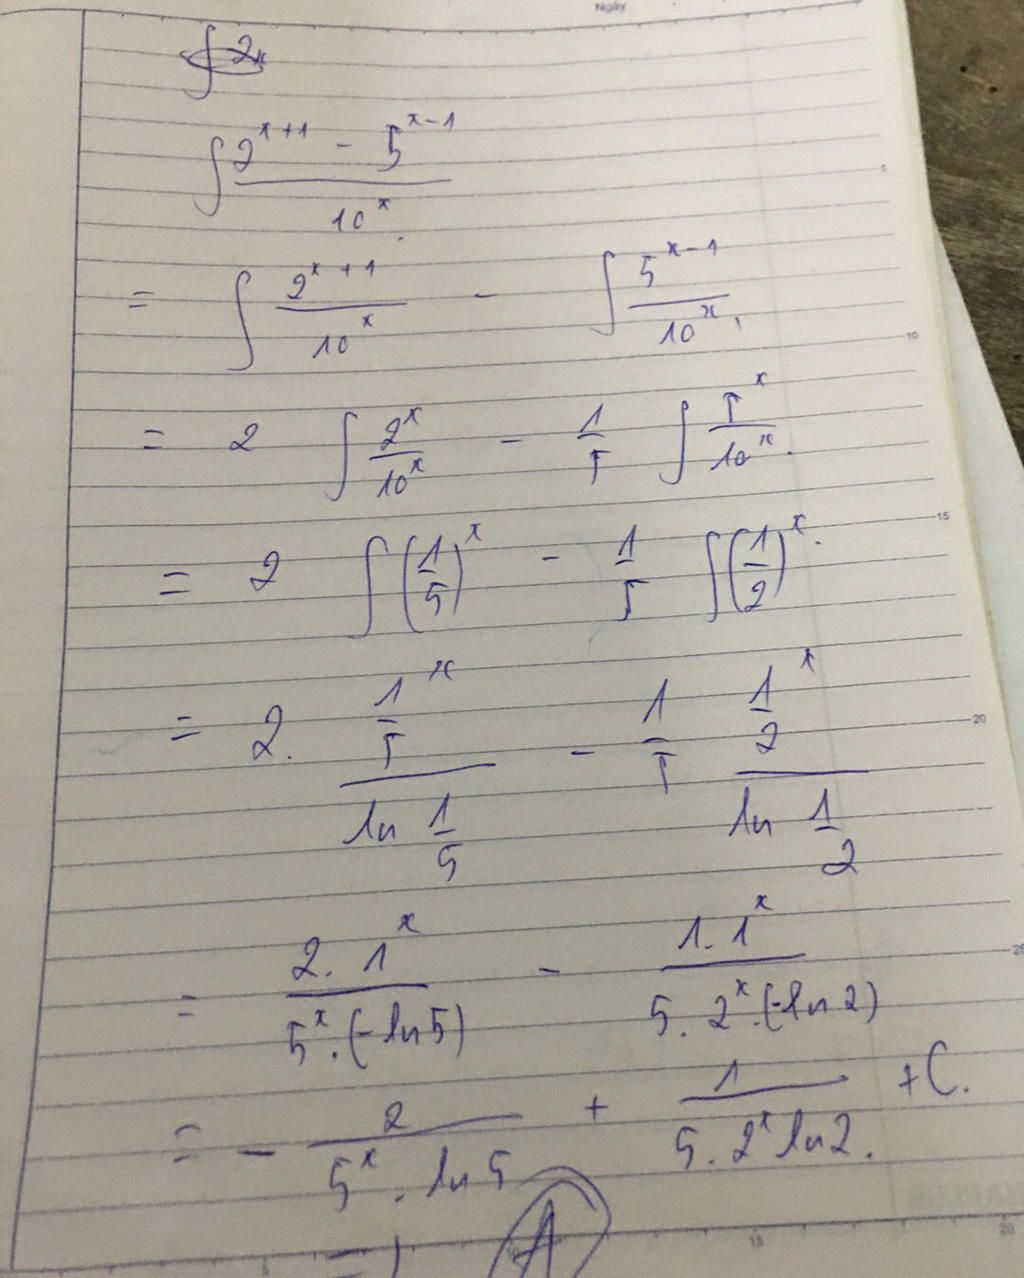 Ngày
∫ 2x
∫ (2^(x+1) - 5^(x-1)) / 10^x .
= ∫ 2^(x+1) / 10^x - ∫ 5^(x-1) / 10^x .
= 2 ∫ 2^x / 10^x - 1/5 ∫ 5^x / 10^x .
= 2 ∫ (1/5)^x - 1/5 ∫ (1/2)^x .
= 2 . (1/5 ^x) / (ln 1/5) - 1/5 (1/2 ^x) / (ln 1/2)
= (2 . 1^x) / (5^x . (-ln 5)) - (1 . 1^x) / (5 . 2^x . (-ln 2))
= - 2 / (5^x . ln 5) + 1 / (5 . 2^x ln 2) . + C.
A
5
10
15
20
25
5
15
20